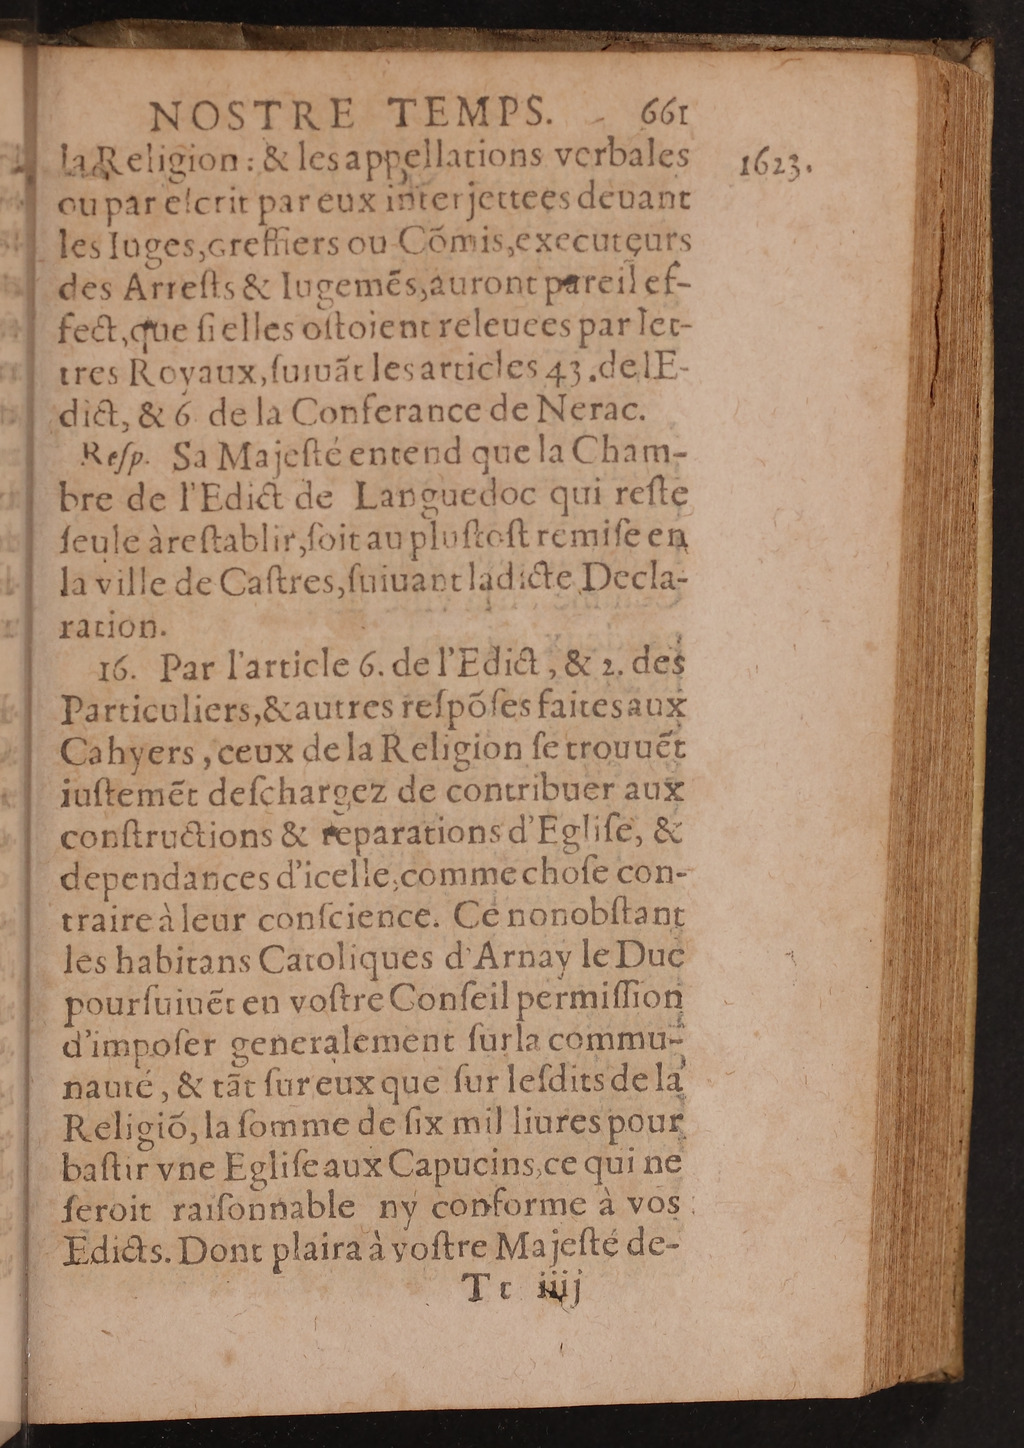 NOSTRE TEMPS. 661
la Religion : & les appellations verbales
1623.
ou par eſcrit par eux interjettees deuant
les Iuges, Greffiers ou Cõmis, executeurs
des Arreſts & Iugemẽs, auront pareil ef-
fect, que ſi elles eſtoient releuees par let-
tres Royaux, ſuiuãt les articles 43. de lE-
dict, & 6. de la Conferance de Nerac.
Reſp. Sa Majeſté entend que la Cham-
bre de l'Edict de Languedoc qui reſte
ſeule à reſtablir, ſoit au pluſtoſt remiſe en
la ville de Caſtres, ſuiuant ladicte Decla-
ration.
16. Par l'article 6. de l'Edict, & 2. des
Particuliers, & autres reſpõſes faites aux
Cahyers, ceux de la Religion ſe trouuẽt
iuſtemẽt deſchargez de contribuer aux
conſtructions & reparations d'Egliſe, &
dependances d'icelle, comme choſe con-
traire à leur conſcience. Ce nonobſtant
les habitans Catoliques d'Arnay le Duc
pourſuiuẽt en voſtre Conſeil permiſſion
d'impoſer generalement ſur la commu-
nauté, & tãt ſur eux que ſur leſdits de la
Religiõ, la ſomme de ſix mil liures pour
baſtir vne Egliſe aux Capucins, ce qui ne
ſeroit raiſonnable ny conforme à vos
Edicts. Dont plaira à voſtre Majeſté de-
Tt iiij